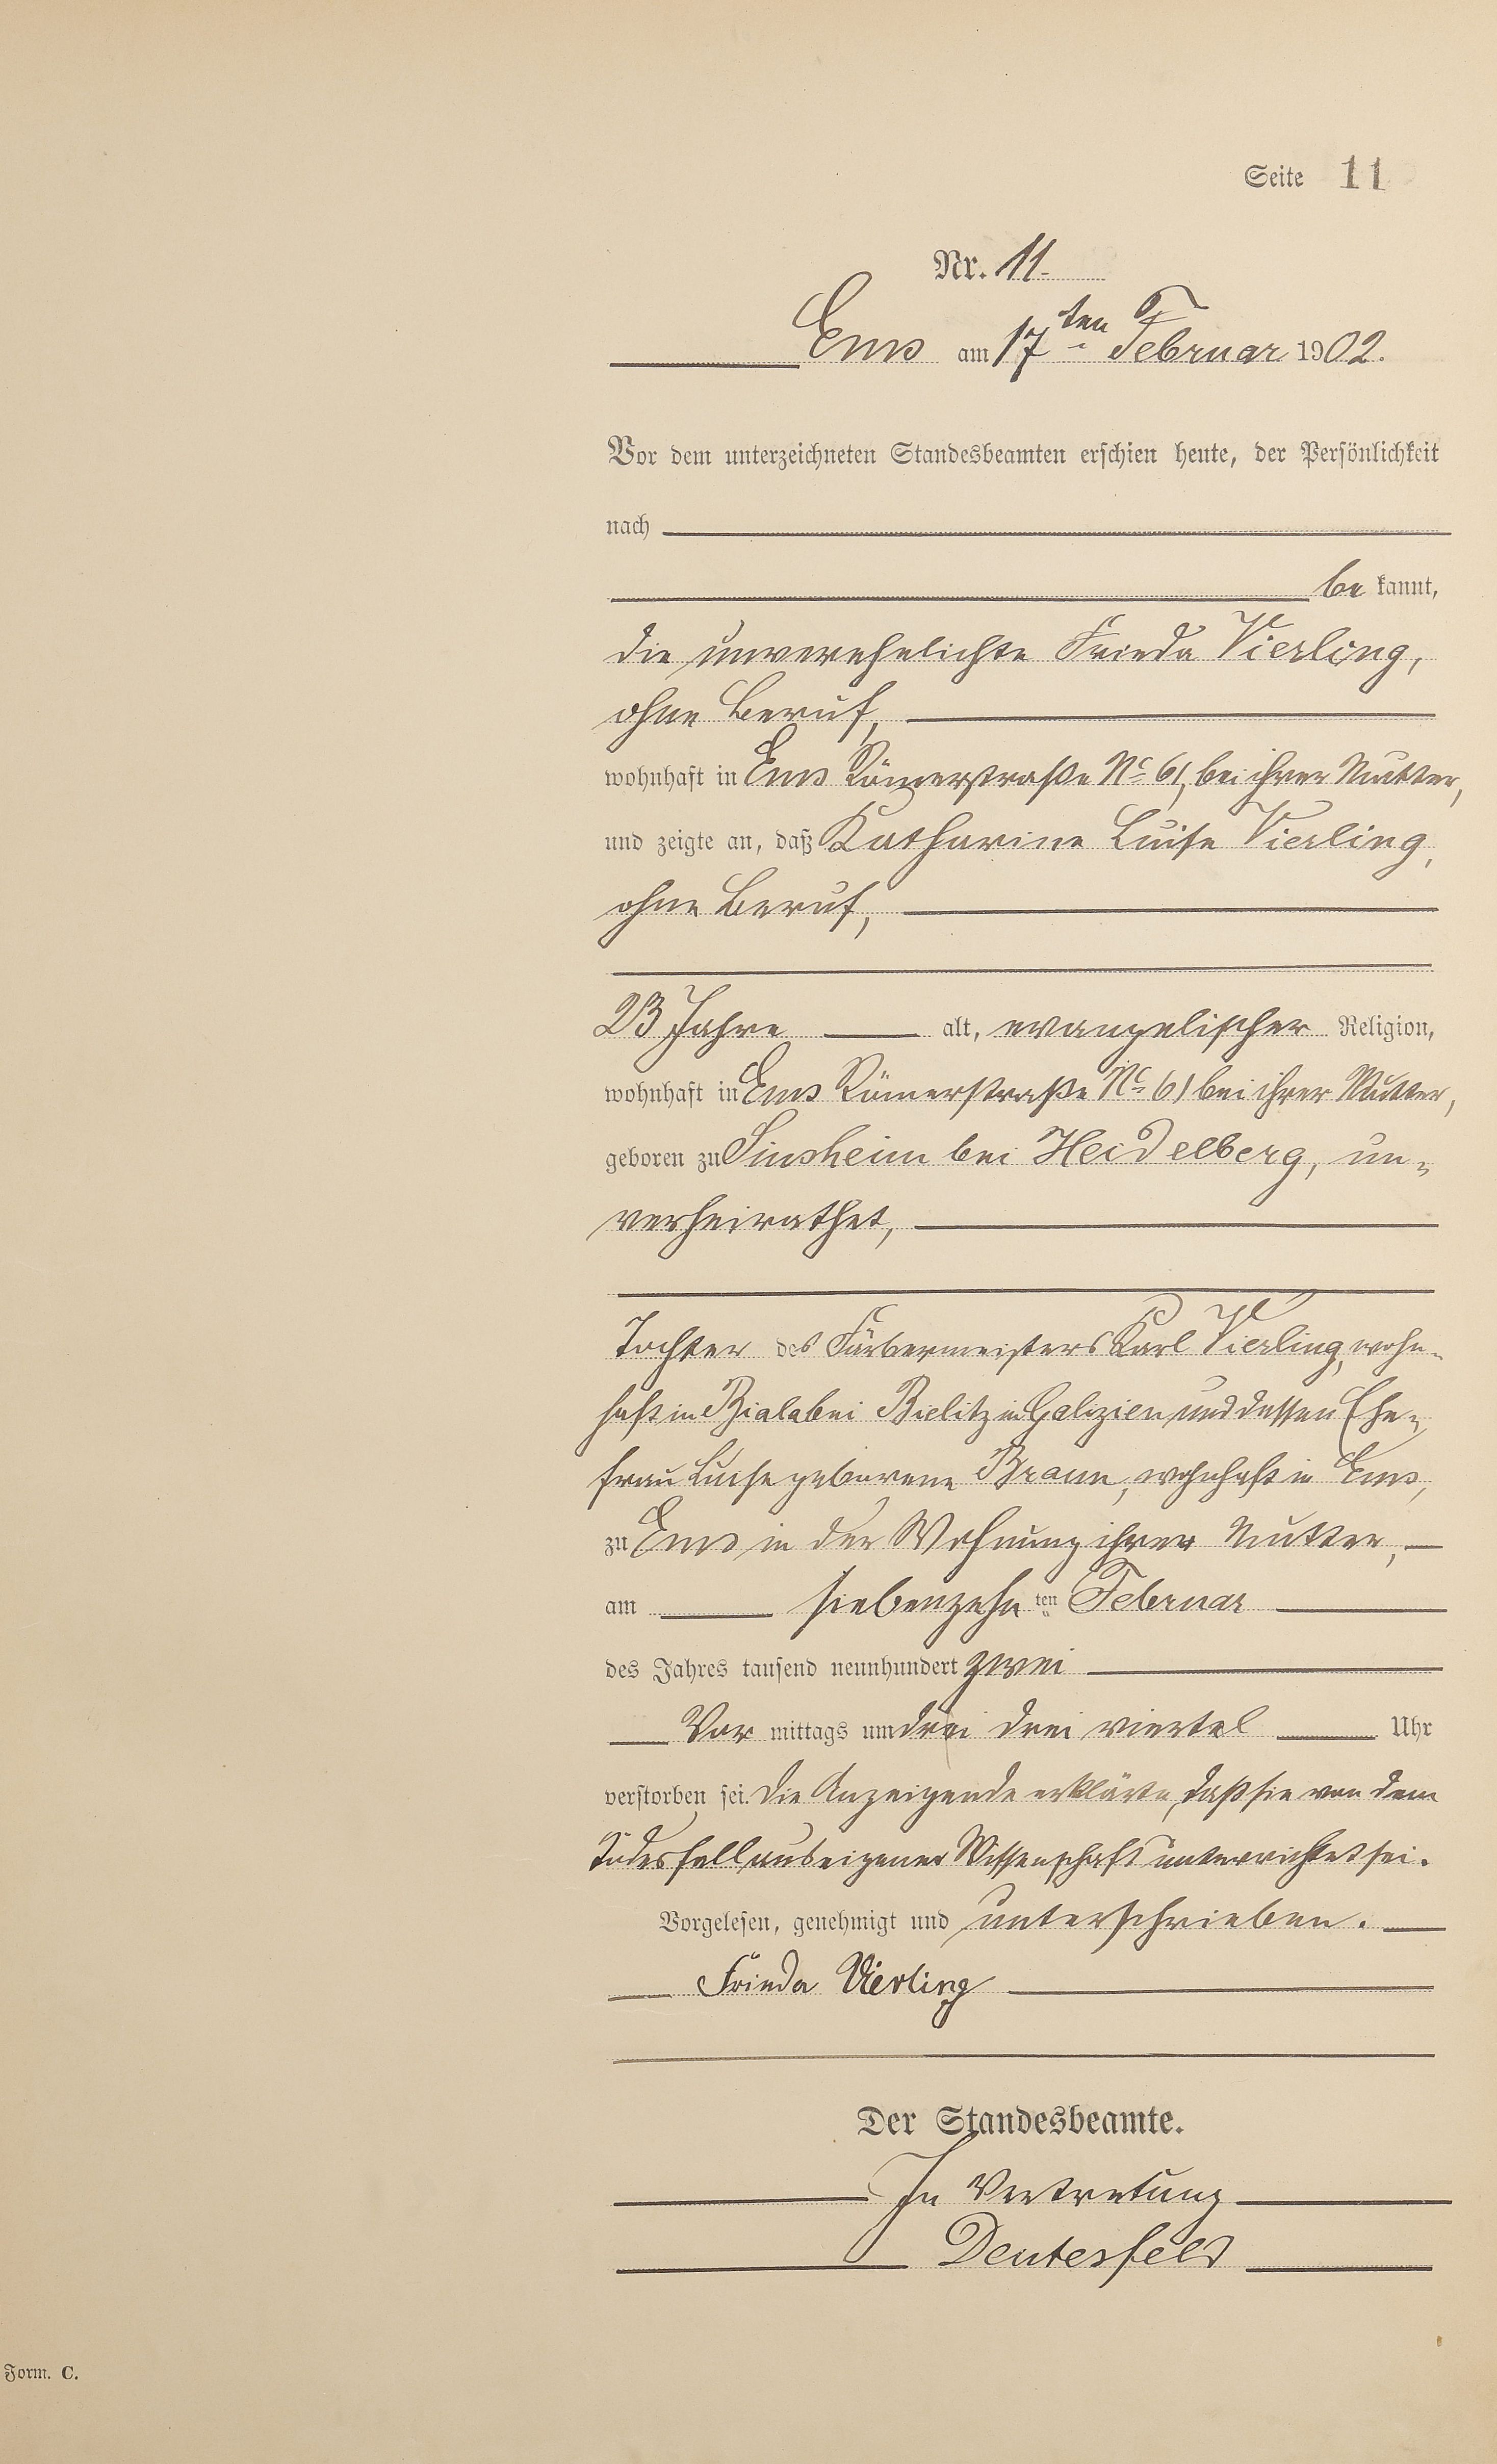 Seite 11
Nr. 11.
Ems am 17ten Februar 1902.
Vor dem unterzeichneten Standesbeamten erschien heute, der Persönlichkeit
nach
be kannt,
die unverehelichte Frieda Vierling,
ohne Beruf,
wohnhaft in Ems Römerstraße No 61, bei ihrer Mutter,
und zeigte an, daß Katharine Luise Vierling,
ohne Beruf,
23 Jahre alt, evangelischer Religion,
wohnhaft in Ems Römerstraße No 61 bei ihrer Mutter,
geboren zu Sinsheim bei Heidelberg, un-
verheirathet,
Tochter des Färbermeisters Karl Vierling, wohn-
haft in Biala bei Bielitz in Galizien und dessen Ehe-
frau Luise geborene Braun, wohnhaft in Ems,
zu Ems in der Wohnung ihrer Mutter,
am siebenzehn ten Februar
des Jahres tausend neunhundert zwei
Vor mittags um drei drei viertel Uhr
verstorben sei. Die Anzeigende erklärte, daß sie von dem
Todesfall aus eigener Wissenschaft unterrichtet sei.
Vorgelesen, genehmigt und unterschrieben.
Frieda Vierling
Der Standesbeamte.
In Vertretung
Deutesfeld
Form. C.